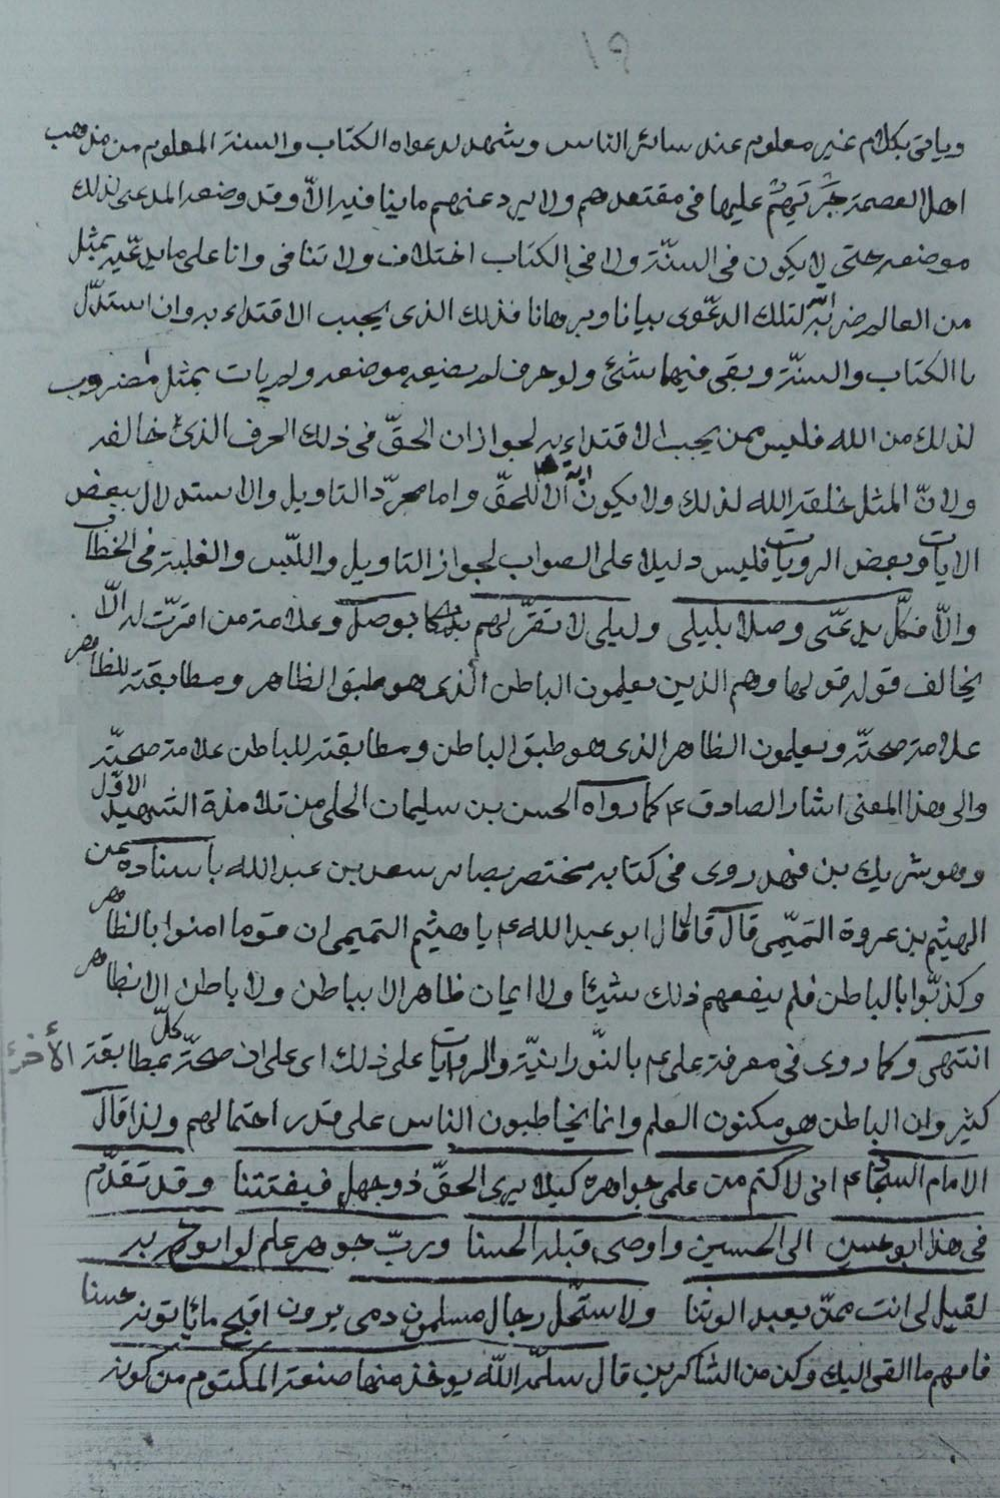 ١٩
وياتى بكلام غير معلوم عند سائر الناس ويشهد لدعواه الكتاب والسنة المعلوم من مذهب
اهل العصمة جَرْيَهُم عليها فى مقتصدهم ولا يرد عنهم ما ينافيه الّا وقد وضعه المدعى لذلك
موضعه حتى لا يكون فى السنّة ولا فى الكتاب اختلاف ولا تنافى واتا على ما يدّعيه بمثل
من العالم ضربه اللّه لتلك الدعوى بيانا وبرهانا فذلك الذى يجب الاقتداء به وان استدلّ
بالكتاب والسنّة وبقى فيهما شئ ولو حرف لم يضعه موضعه ولم يات بمثل مضروب
لذلك من الله فليس ممن يجب الاقتداء به لجواز ان الحقّ فى ذلك الحرف الذى خالفه
ولانّ المثل خلقه الله لذلك ولا يكون آية الّا للحقّ واما مجرّد التاويل والاستدلال ببعض
الايات وبعض الروايات فليس دليلا على الصواب لجواز التاويل واللّبس والغلبة فى الخطاب
والّا فكلّ يدّعى وصلا بليلى وليلى لا تقرّ لهم بذاكا بوصل وعلامة من اقرّت له الّا
يخالف قوله قولها وهم الذين يعلمون الباطن الّذى هو طبق الظاهر ومطابقته للظاهر
علامة صحتّه ويعلمون الظاهر الذى هو طبق الباطن ومطابقته للباطن علامة صحتّه
والى هذا المعنى اشار الصادق ع كما رواه الحسن بن سليمان الحلى من تلامذة الشهيد الاوّل
وهو شريك بن فهد روى فى كتابه مختصر بصاير سعد بن عبد الله باسناده عن
الهيثم بن عروة التميّمى قال قال لى ابو عبد الله ع يا هيثم التميمى ان قوما امنوا بالظاهر
وكذّبوا بالباطن فلم ينفعهم ذلك شيئا ولا ايمان ظاهر الا بباطن ولا باطن الا بظاهر
انتهى وكما روى فى معرفة على ع بالنّورانيّة والروايات على ذلك اى على ان صحّة كلّ بمطابقة الأخرى
كثير وان الباطن هو مكنون العلم وانما يخاطبون الناس على قدر احتمالهم ولذا قال
الامام السجّاد ع انى لاكتم من علمى جواهره كيلا يرى الحقّ ذو جهل فيفتتنا وقد تقدّم
فى هذا ابو حسن الى الحسين واوصى قبله الحسنا وربّ جوهر علم لو ابوح به
لقيل لى انت ممّن يعبد الوثنا ولاستحّل رجال مسلمون دمى يرون اقبح ما ياتونه حسنا
فافهم ما القى اليك وكن من الشاكرين قال سلّمه اللّه يوخذ منها صنعة المكتوم من كونه